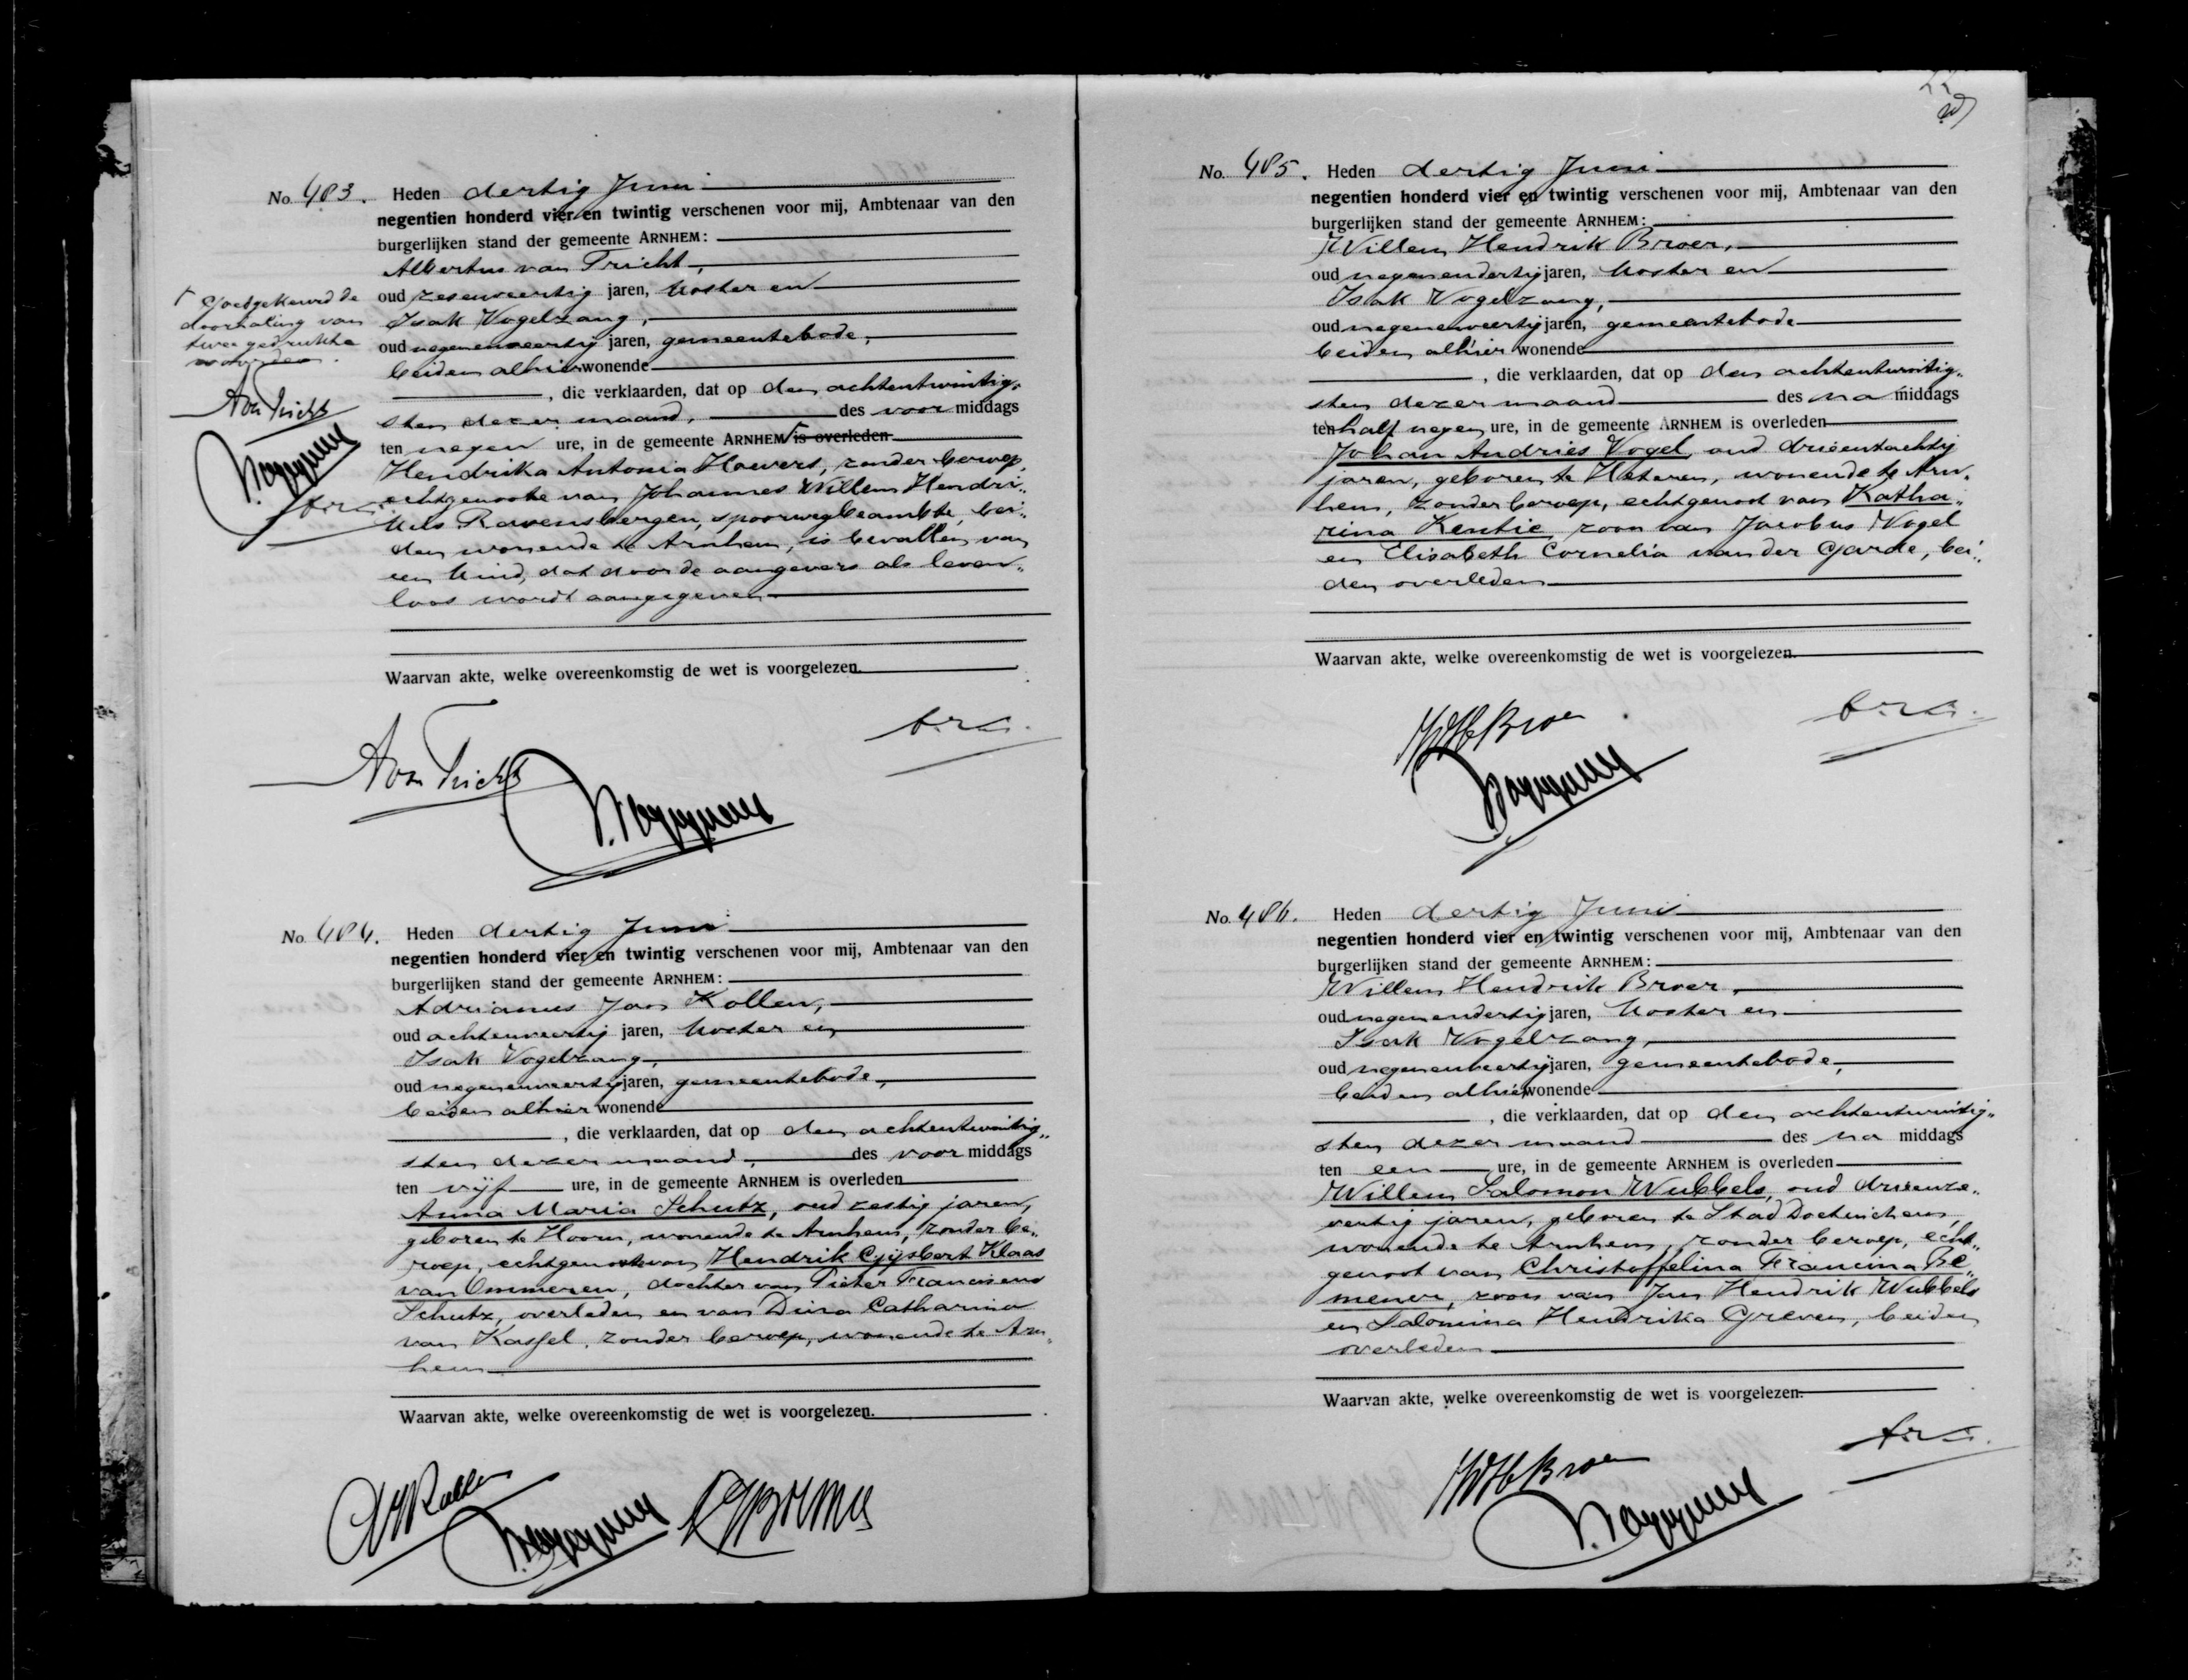 No. 483. Heden dertig Juni
negentien honderd vier en twintig verschenen voor mij, Ambtenaar van den
burgerlijken stand der gemeente ARNHEM:
Albertus van Tricht,
oud zesenveertig jaren, koster en
Isak Vogelzang,
oud negenenveertig jaren, gemeentebode,
beiden alhier wonende
, die verklaarden, dat op den achtentwintig„
sten dezer maand, des voor middags
ten negen ure, in de gemeente ARNHEM is overleden
Hendrika Antonia Hoevers, zonder beroep,
echtgenoote van Johannes Willem Hendri„
kus Ravensbergen, spoorwegbeambte, bei„
den wonende te Arnhem, is bevallen van
een kind, dat door de aangevers als leven„
loos wordt aangegeven
Waarvan akte, welke overeenkomstig de wet is voorgelezen.
Goedgekeurd de
doorhaling van
twee gedrukte
woorden.
A van Tricht
I. Vogelzang
A van Tricht
I. Vogelzang
No. 484. Heden dertig Juni
negentien honderd vier en twintig verschenen voor mij, Ambtenaar van den
burgerlijken stand der gemeente ARNHEM:
Adrianus Jan Kollen,
oud achtenveertig jaren, koster en
Isak Vogelzang,
oud negenenveertig jaren, gemeentebode,
beiden alhier wonende
, die verklaarden, dat op den achtentwintig„
sten dezer maand, des voor middags
ten vijf ure, in de gemeente ARNHEM is overleden
Anna Maria Schutz, oud zestig jaren,
geboren te Hoorn, wonende te Arnhem, zonder be„
roep, echtgenoote van Hendrik Gijsbert Klaas
van Ommeren, dochter van Pieter Franciscus
Schutz, overleden en van Dina Catharina
van Kassel, zonder beroep, wonende te Arn„
hem
Waarvan akte, welke overeenkomstig de wet is voorgelezen.
AJKollen
I. Vogelzang
No. 485. Heden dertig Juni
negentien honderd vier en twintig verschenen voor mij, Ambtenaar van den
burgerlijken stand der gemeente ARNHEM:
Willem Hendrik Broer,
oud negenendertig jaren, koster en
Isak Vogelzang,
oud negenenveertig jaren, gemeentebode
beiden alhier wonende
, die verklaarden, dat op den achtentwintig„
sten dezer maand des na middags
ten half negen ure, in de gemeente ARNHEM is overleden
Johan Andries Vogel, oud drieentachtig
jaren, geboren te Heteren, wonende te Arn„
hem, zonder beroep, echtgenoot van Katha„
rina Kentie, zoon van Jacobus Vogel
en Elisabeth Cornelia van der Garde, bei„
den overleden
Waarvan akte, welke overeenkomstig de wet is voorgelezen.
WHBroer
I. Vogelzang
No. 486. Heden dertig Juni
negentien honderd vier en twintig verschenen voor mij, Ambtenaar van den
burgerlijken stand der gemeente ARNHEM:
Willem Hendrik Broer,
oud negenendertig jaren, koster en
Isak Vogelzang,
oud negenenveertig jaren, gemeentebode,
beiden alhier wonende
, die verklaarden, dat op den achtentwintig„
sten dezer maand des na middags
ten een ure, in de gemeente ARNHEM is overleden
Willem Salomon Wubbels, oud drieenze„
ventig jaren, geboren te Stad Doetinchem,
wonende te Arnhem, zonder beroep, echt„
genoot van Christoffelina Francina Be„
mener, zoon van Jan Hendrik Wubbels
en Salomina Hendrika Greven, beiden
overleden
Waarvan akte, welke overeenkomstig de wet is voorgelezen.
WHBroer
I. Vogelzang